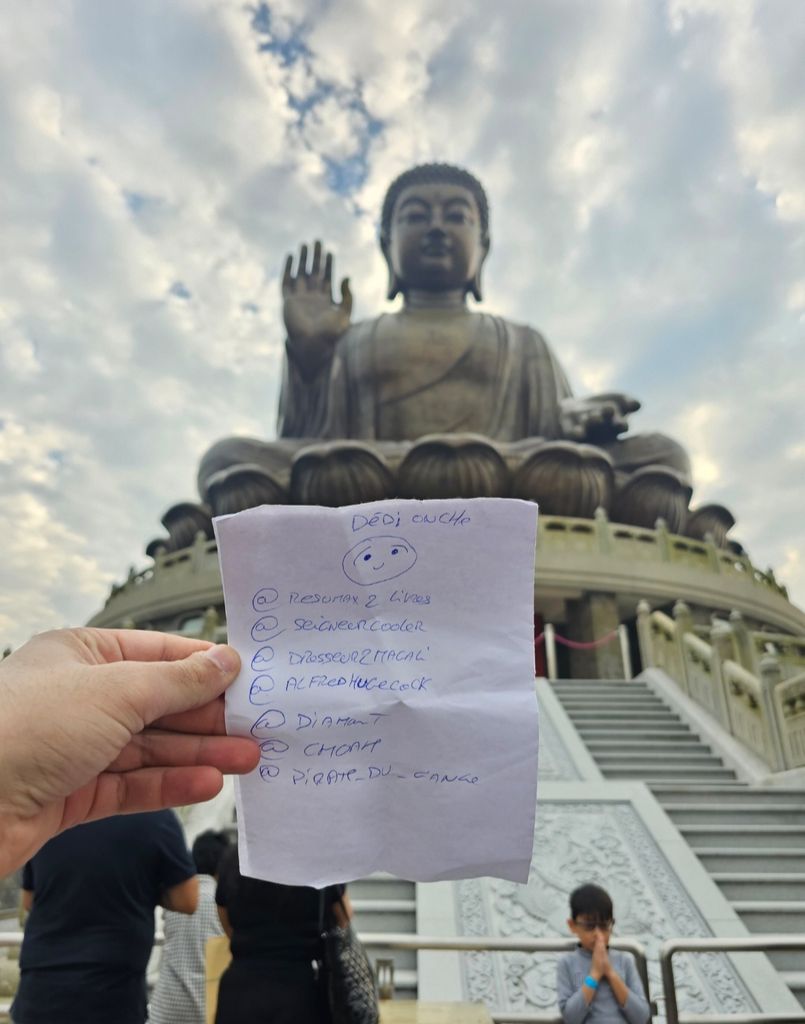 DéDi ONCHE
@ RESUMAX2 LiVRES
@ SEIGNEURCOOLER
@ DRESSEUR2MACALi
@ ALFREDHUGECOCK
@ DiAMANT
@ CHOAM
@ PiRATE_DU_GANGE